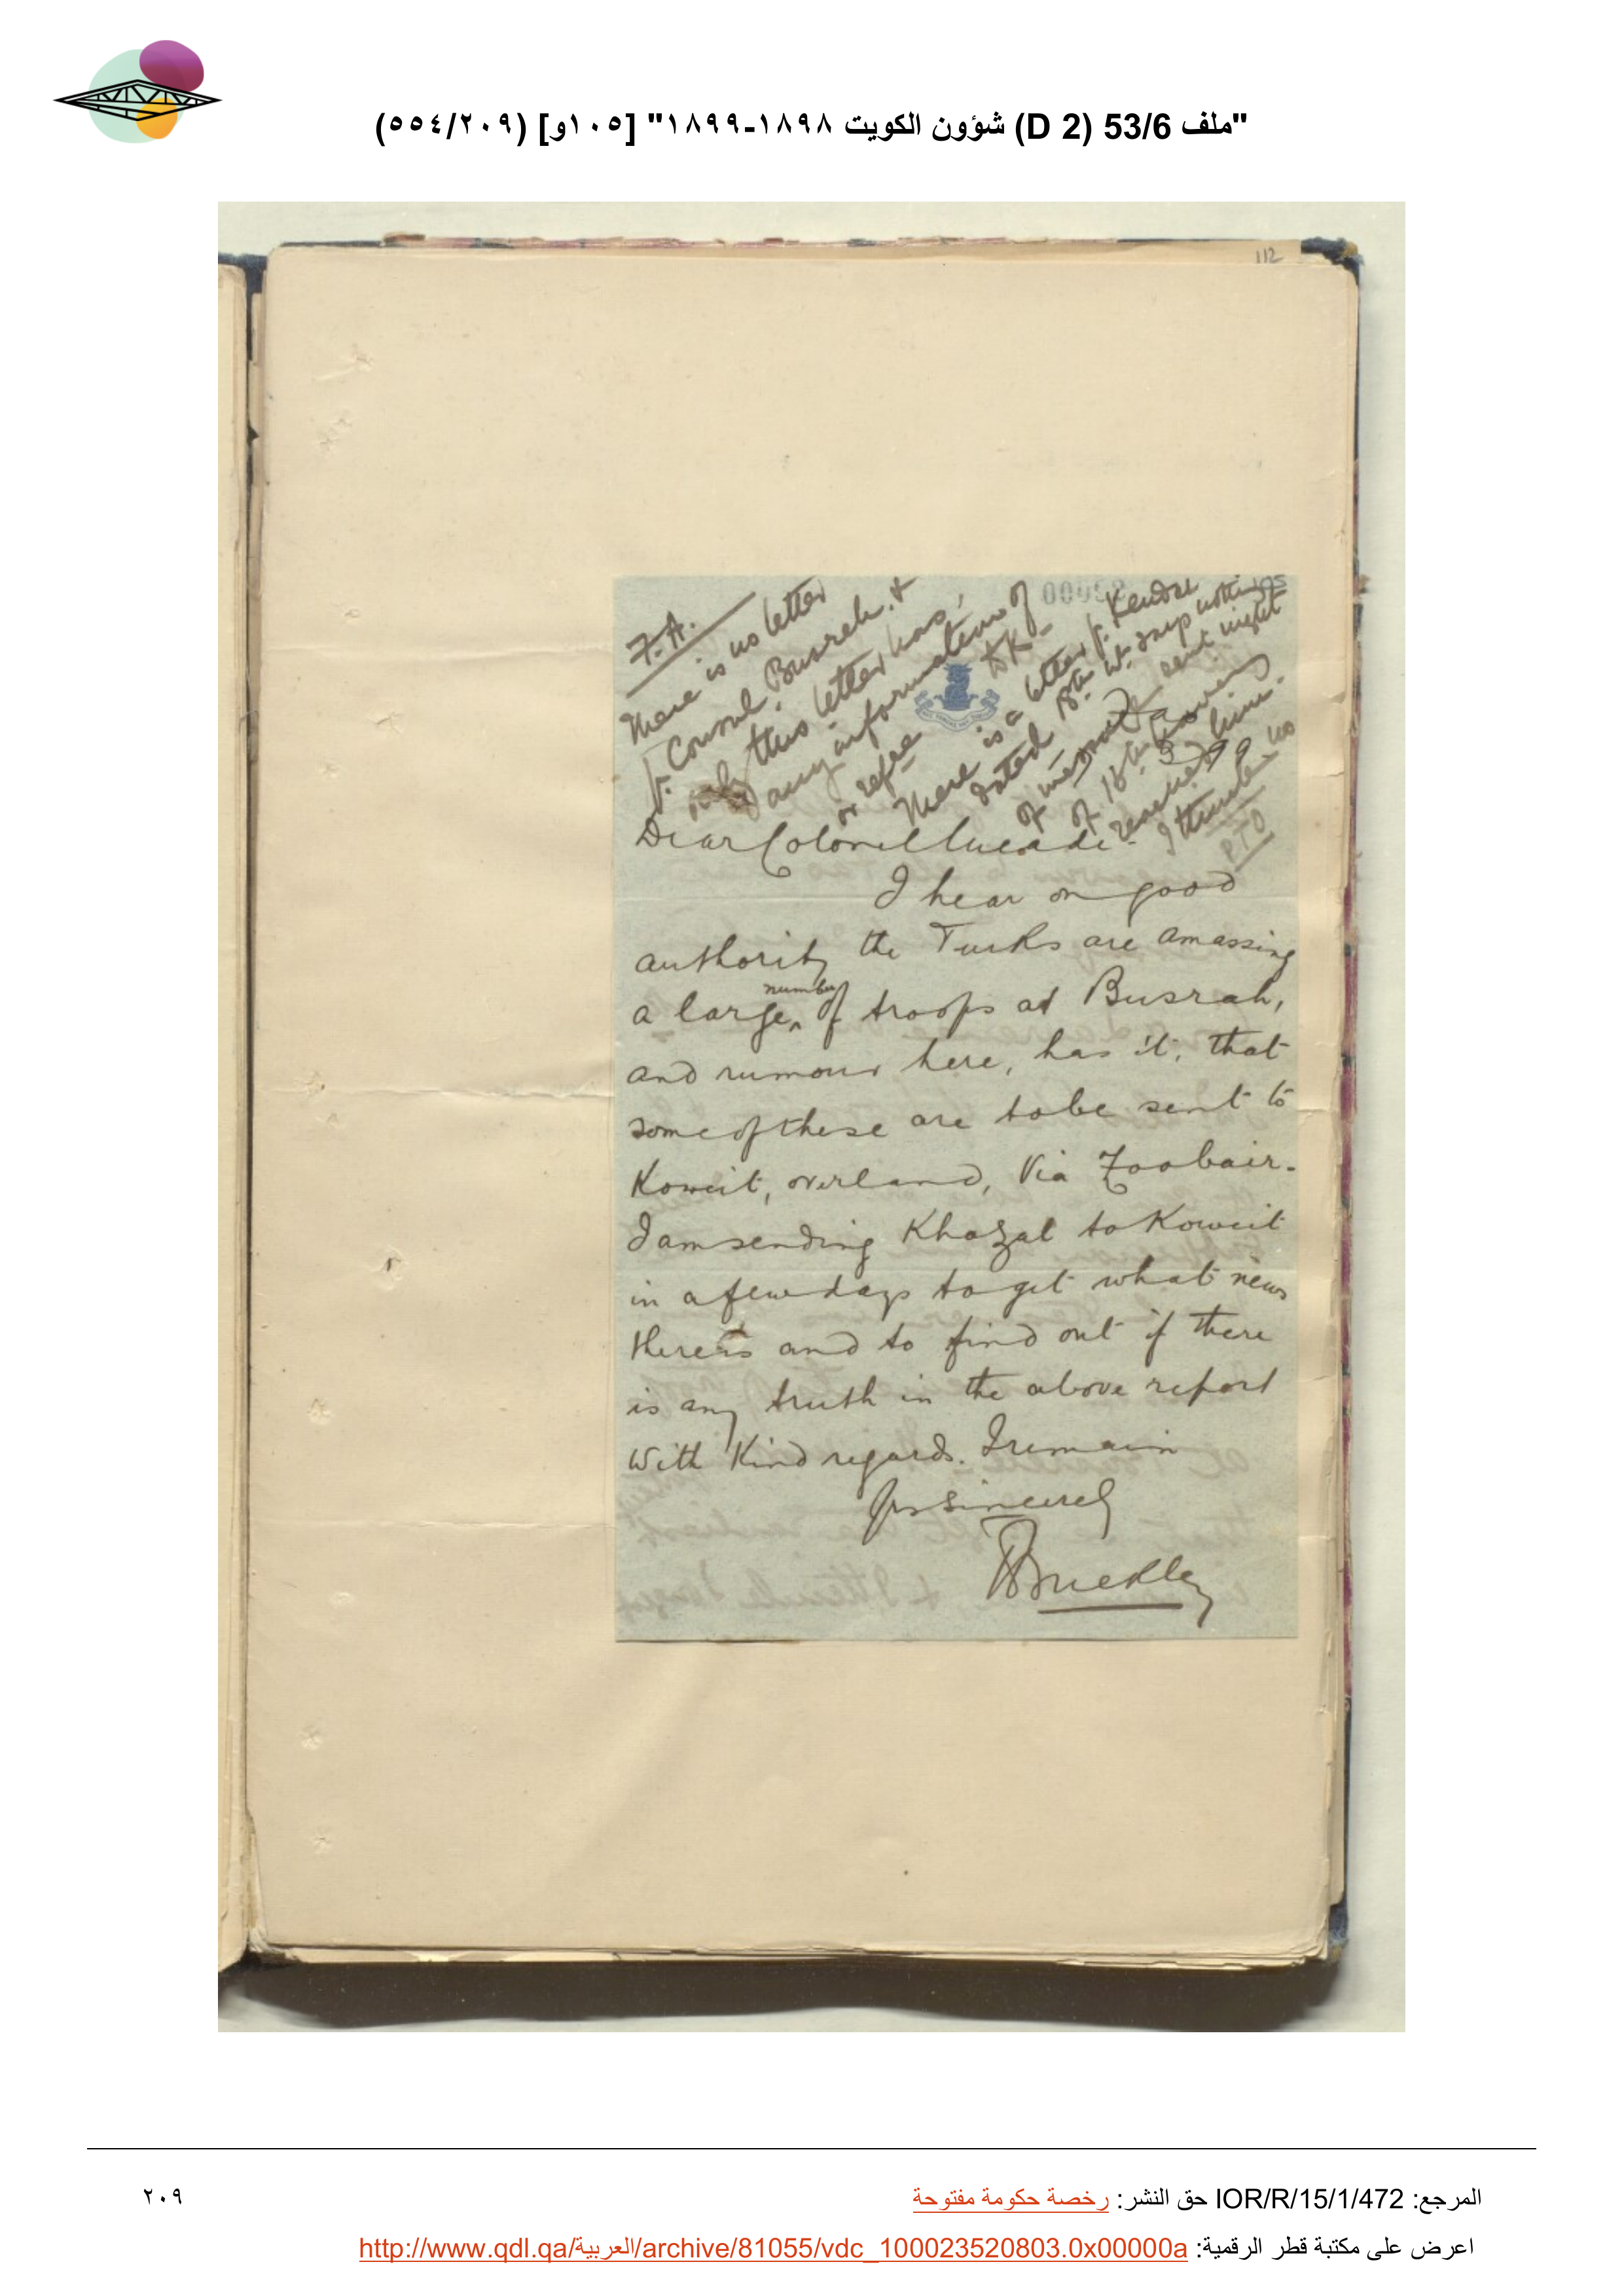 "ملف 53/6 (D 2) شؤون الكويت ١٨٩٨-١٨٩٩" [١٠٥و] (٢٠٩/٥٥٤)
112
105
F.A.
There is no letter
fr. Consul, Busreh, &
only this letter has
any information of
or refce to K-
There is a letter fr. Kendal
dated 18th
of 18th
received him.
I think no
PTO
3 99
Dear Colonel Meade-
I hear on good
authority the Turks are amassing
a large number of troops at Busrah,
and rumour here, has it, that
some of these are to be sent to
Koweit, overland, Via Zoobair-
I am sending Khazal to Koweit
in a few days to get what news
there is and to find out if there
is any truth in the above report
With Kind regards. I remain
Yrs sincerely
Buckley
المرجع: IOR/R/15/1/472 حق النشر: رخصة حكومة مفتوحة
٢٠٩
اعرض على مكتبة قطر الرقمية: http://www.qdl.qa/العربية/archive/81055/vdc_100023520803.0x00000a